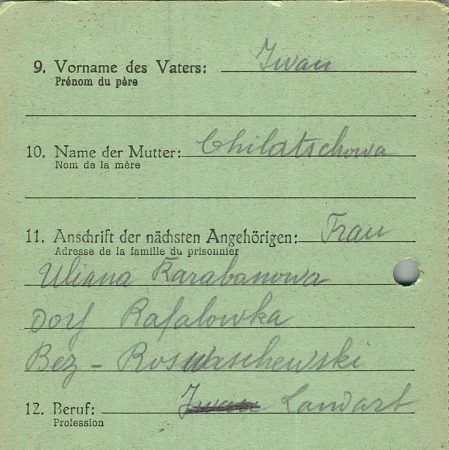 9. Vorname des Vaters: Iwan
Prénom du père
10. Name der Mutter: Chilatschowa
Nom de la mère
11. Anschrift der nächsten Angehörigen: Frau
Adresse de la famille du prisonnier
Uliana Karabanowa
Dorf Rafalowka
Bez-Roswaschewski
12. Beruf: Iwan Landarb
Profession